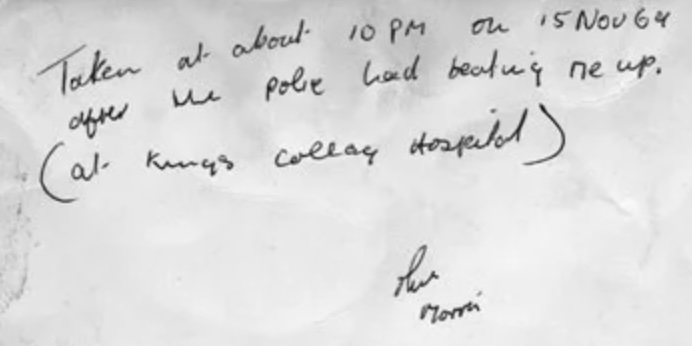 Taken at about 10 PM on 15 Nov 69
after the police had beating me up.
(at Kings colleag Hospital)
Olive
Morris